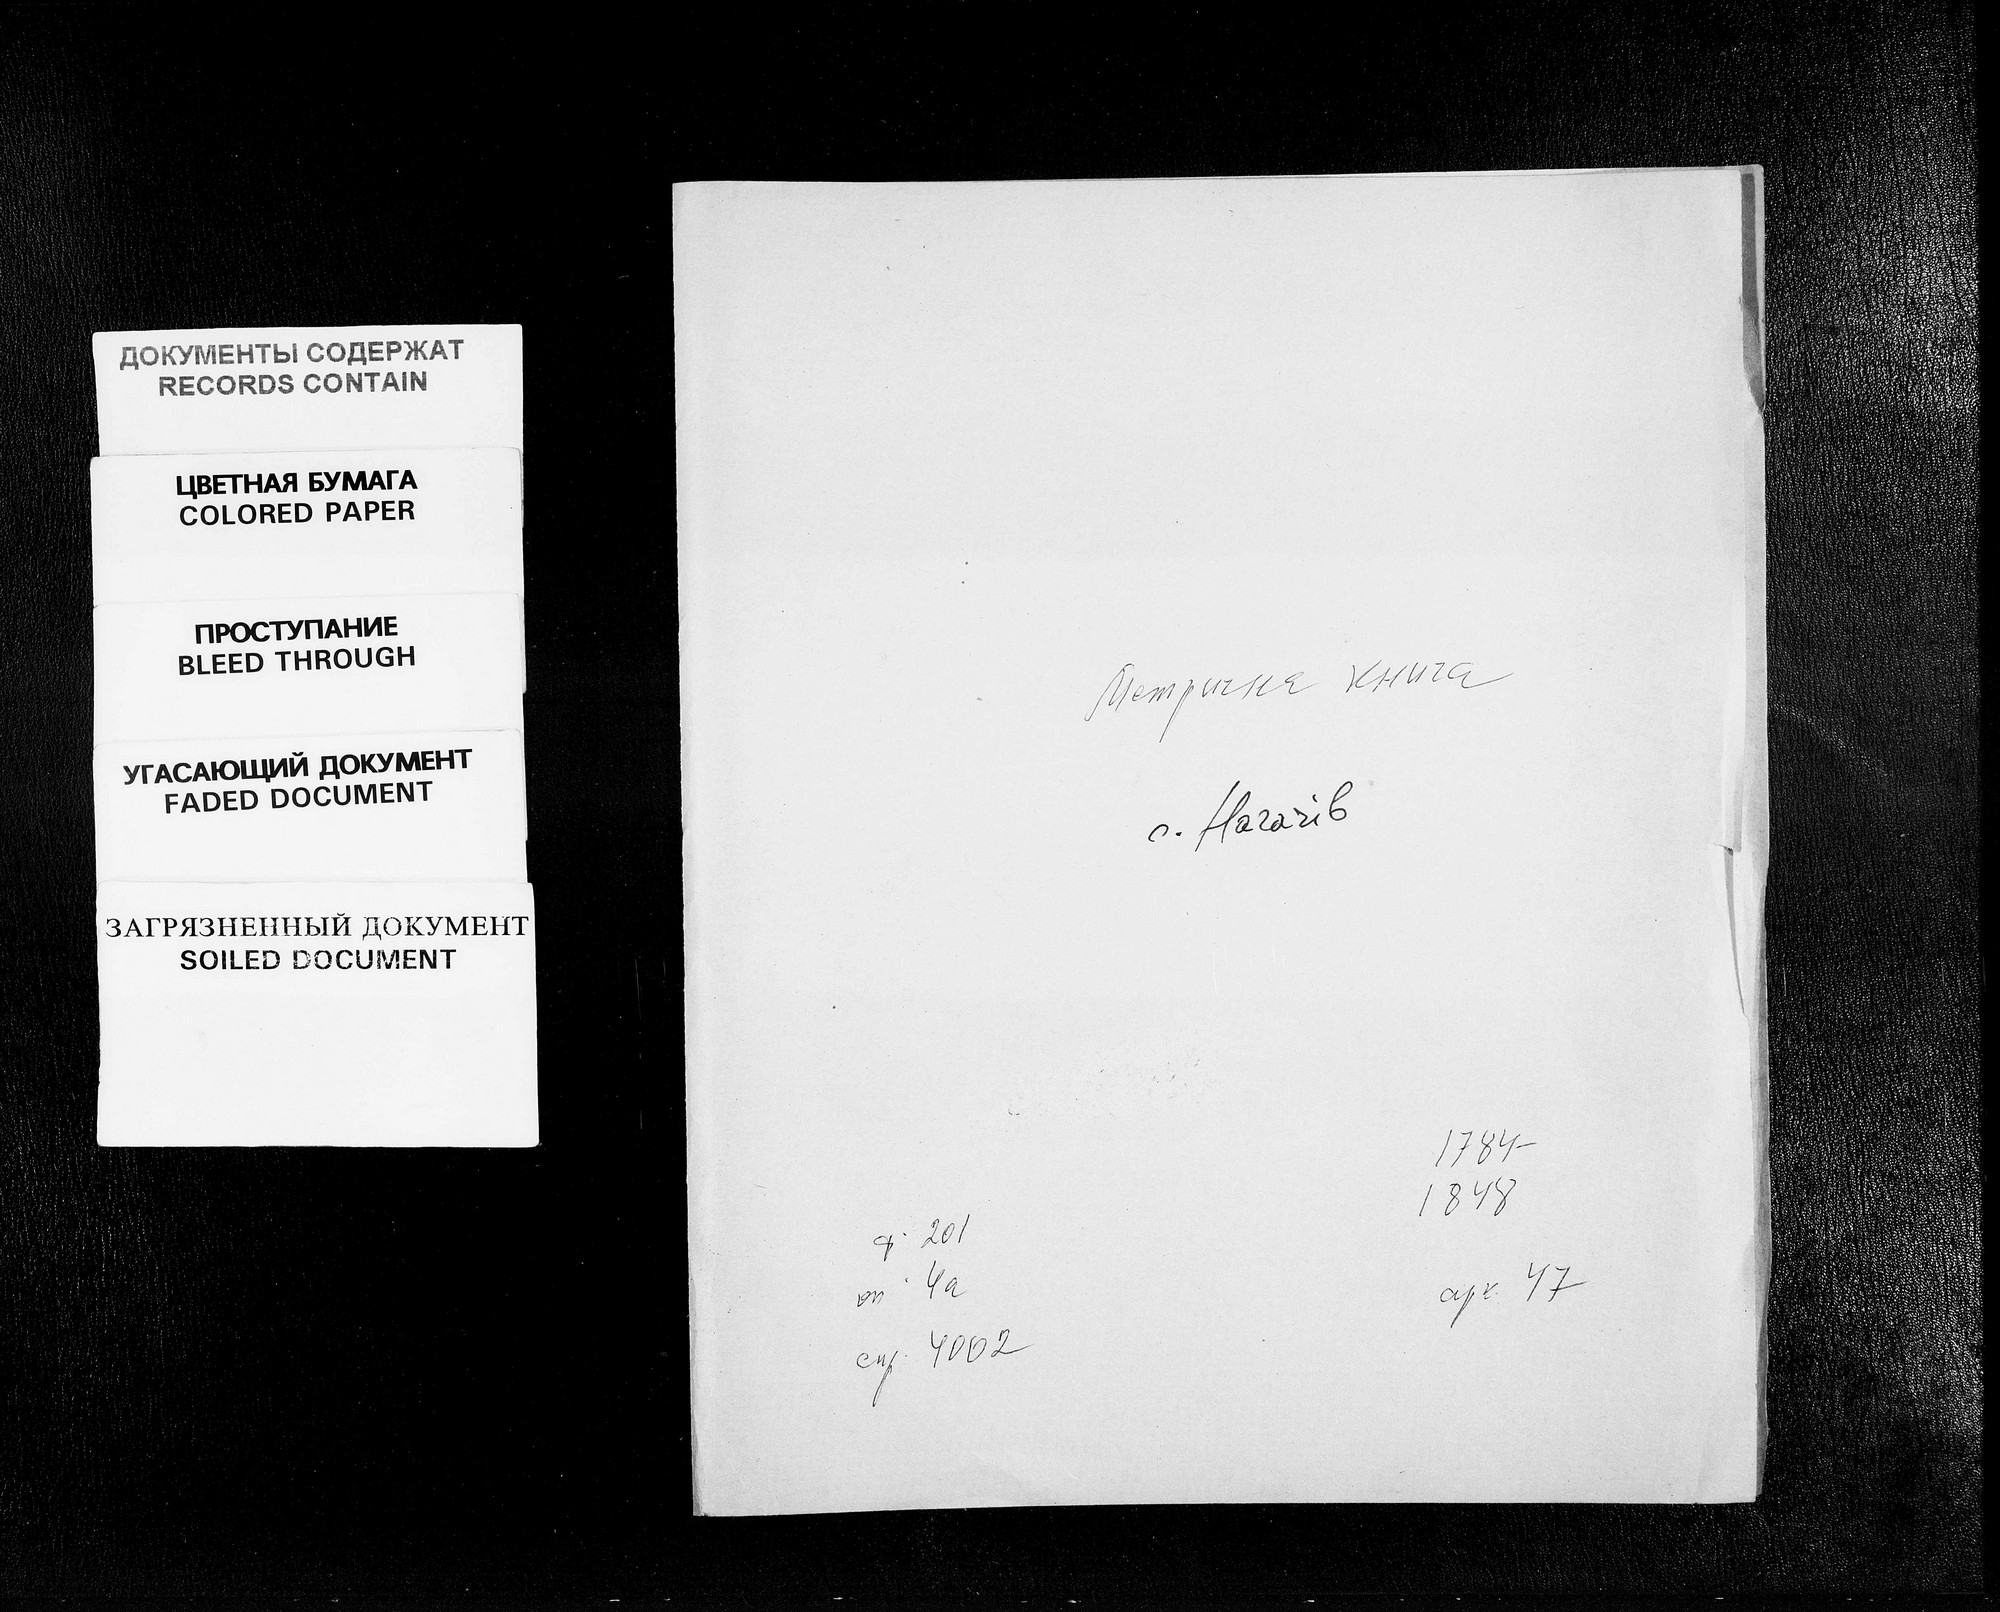 ДОКУМЕНТЫ СОДЕРЖАТ
RECORDS CONTAIN
ЦВЕТНАЯ БУМАГА
COLORED PAPER
ПРОСТУПАНИЕ
BLEED THROUGH
УГАСАЮЩИЙ ДОКУМЕНТ
FADED DOCUMENT
ЗАГРЯЗНЕННЫЙ ДОКУМЕНТ
SOILED DOCUMENT
Метрична книга
с. Нагачів
1784-
1848
ф. 201
оп. 4а
спр. 4002
арк. 47